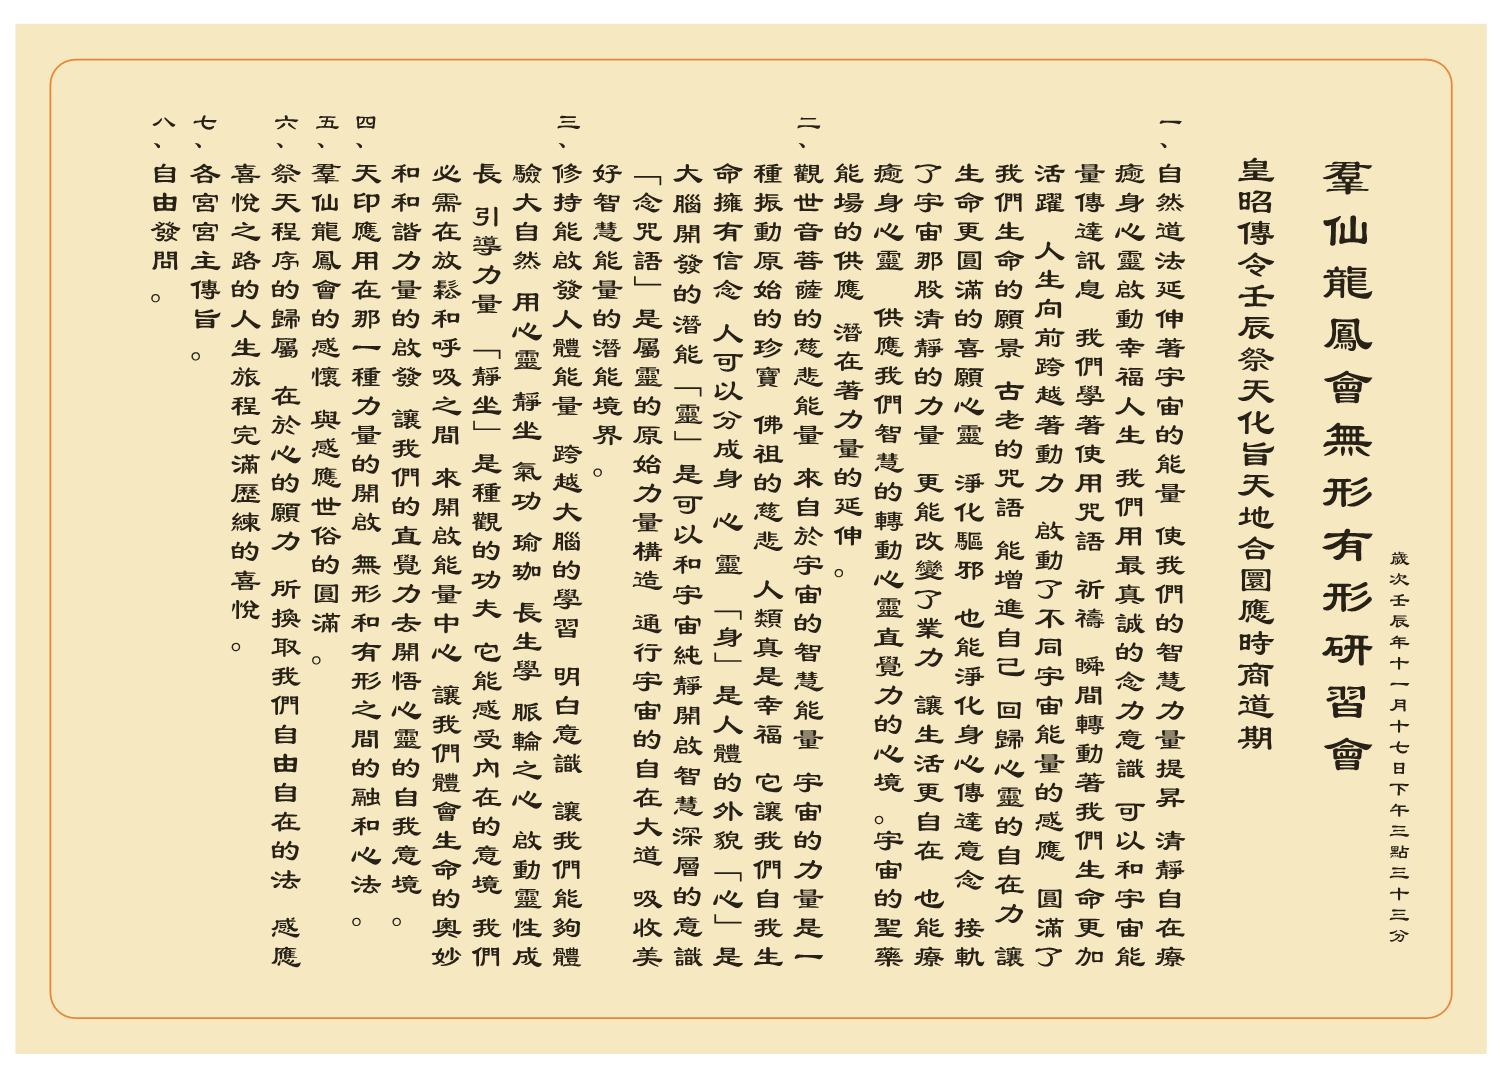 歲次壬辰年十一月十七日下午三點三十三分
羣仙龍鳳會無形有形研習會
皇昭傳令壬辰祭天化旨天地合圜應時商道期
一、自然道法延伸著宇宙的能量 使我們的智慧力量提昇 清靜自在療
癒身心靈啟動幸福人生 我們用最真誠的念力意識 可以和宇宙能
量傳達訊息 我們學著使用咒語 祈禱 瞬間轉動著我們生命更加
活躍 人生向前跨越著動力 啟動了不同宇宙能量的感應 圓滿了
我們生命的願景 古老的咒語 能增進自己 回歸心靈的自在力 讓
生命更圓滿的喜願心靈 淨化驅邪 也能淨化身心傳達意念 接軌
了宇宙那股清靜的力量 更能改變了業力 讓生活更自在 也能療
癒身心靈 供應我們智慧的轉動心靈直覺力的心境。宇宙的聖藥
能場的供應 潛在著力量的延伸。
二、觀世音菩薩的慈悲能量 來自於宇宙的智慧能量 宇宙的力量是一
種振動原始的珍寶 佛祖的慈悲 人類真是幸福 它讓我們自我生
命擁有信念 人可以分成身 心 靈 「身」是人體的外貌「心」是
大腦開發的潛能「靈」是可以和宇宙純靜開啟智慧深層的意識
「念咒語」是屬靈的原始力量構造 通行宇宙的自在大道 吸收美
好智慧能量的潛能境界。
三、修持能啟發人體能量 跨越大腦的學習 明白意識 讓我們能夠體
驗大自然 用心靈 靜坐 氣功 瑜珈 長生學 脈輪之心 啟動靈性成
長 引導力量 「靜坐」是種觀的功夫 它能感受內在的意境 我們
必需在放鬆和呼吸之間 來開啟能量中心 讓我們體會生命的奧妙
和和諧力量的啟發 讓我們的直覺力去開悟心靈的自我意境。
四、天印應用在那一種力量的開啟 無形和有形之間的融和心法。
五、羣仙龍鳳會的感懷 與感應世俗的圓滿。
六、祭天程序的歸屬 在於心的願力 所換取我們自由自在的法 感應
喜悅之路的人生旅程完滿歷練的喜悅。
七、各宮宮主傳旨。
八、自由發問。